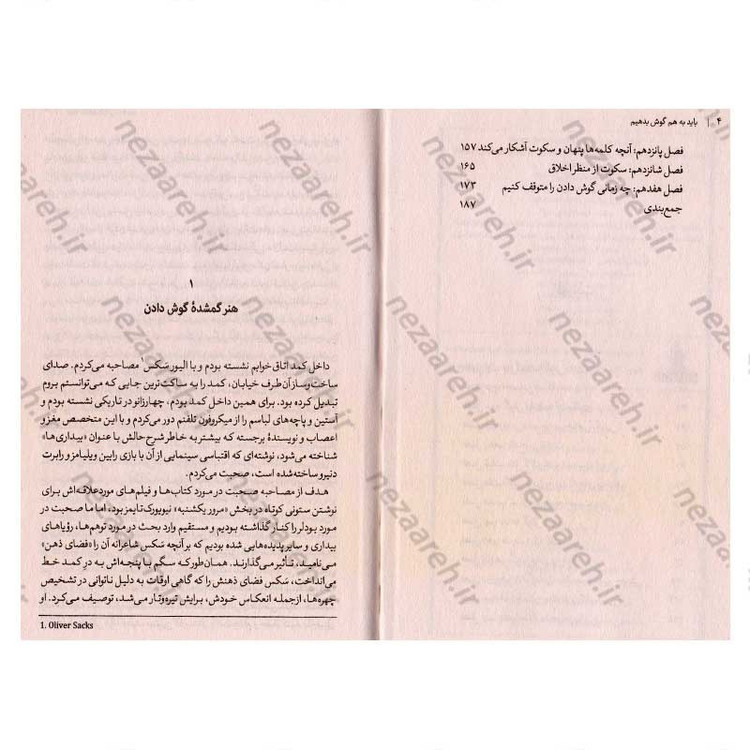 ۴ | باید به هم گوش بدهیم
فصل پانزدهم: آنچه کلمه‌ها پنهان و سکوت آشکار می‌کند ۱۵۷
فصل شانزدهم: سکوت از منظر اخلاق ۱۶۵
فصل هفدهم: چه زمانی گوش دادن را متوقف کنیم ۱۷۳
جمع‌بندی ۱۸۷
۱
هنر گمشدهٔ گوش دادن
داخل کمد اتاق خوابم نشسته بودم و با الیور سَکس¹ مصاحبه می‌کردم. صدای
ساخت‌وساز آن طرف خیابان، کمد را به ساکت‌ترین جایی که می‌توانستم بروم
تبدیل کرده بود. برای همین داخل کمد بودم، چهارزانو در تاریکی نشسته بودم و
آستین و پاچه‌های لباسم را از میکروفون تلفنم دور می‌کردم و با این متخصص مغز و
اعصاب و نویسندهٔ برجسته که بیشتر به خاطر شرح حالش با عنوان «بیداری‌ها»
شناخته می‌شود، نوشته‌ای که اقتباسی سینمایی از آن با بازی رابین ویلیامز و رابرت
دنیرو ساخته شده است، صحبت می‌کردم.
هدف از مصاحبه صحبت در مورد کتاب‌ها و فیلم‌های موردعلاقه‌اش برای
نوشتن ستونی کوتاه در بخش «مرور یکشنبه» نیویورک تایمز بود، اما ما صحبت در
مورد بودلر را کنار گذاشته بودیم و مستقیم وارد بحث در مورد توهم‌ها، رؤیاهای
بیداری و سایر پدیده‌هایی شده بودیم که بر آنچه سَکس شاعرانه آن را «فضای ذهن»
می‌نامید، تأثیر می‌گذارند. همان‌طور که سگم با پنجه‌اش به درِ کمد خط
می‌انداخت، سَکس فضای ذهنش را که گاهی اوقات به دلیل ناتوانی در تشخیص
چهره‌ها، ازجمله انعکاس خودش، برایش تیره‌وتار می‌شد، توصیف می‌کرد. او
1. Oliver Sacks
nezaareh.ir
nezaareh.ir
nezaareh.ir
nezaareh.ir
nezaareh.ir
nezaareh.ir
nezaareh.ir
nezaareh.ir